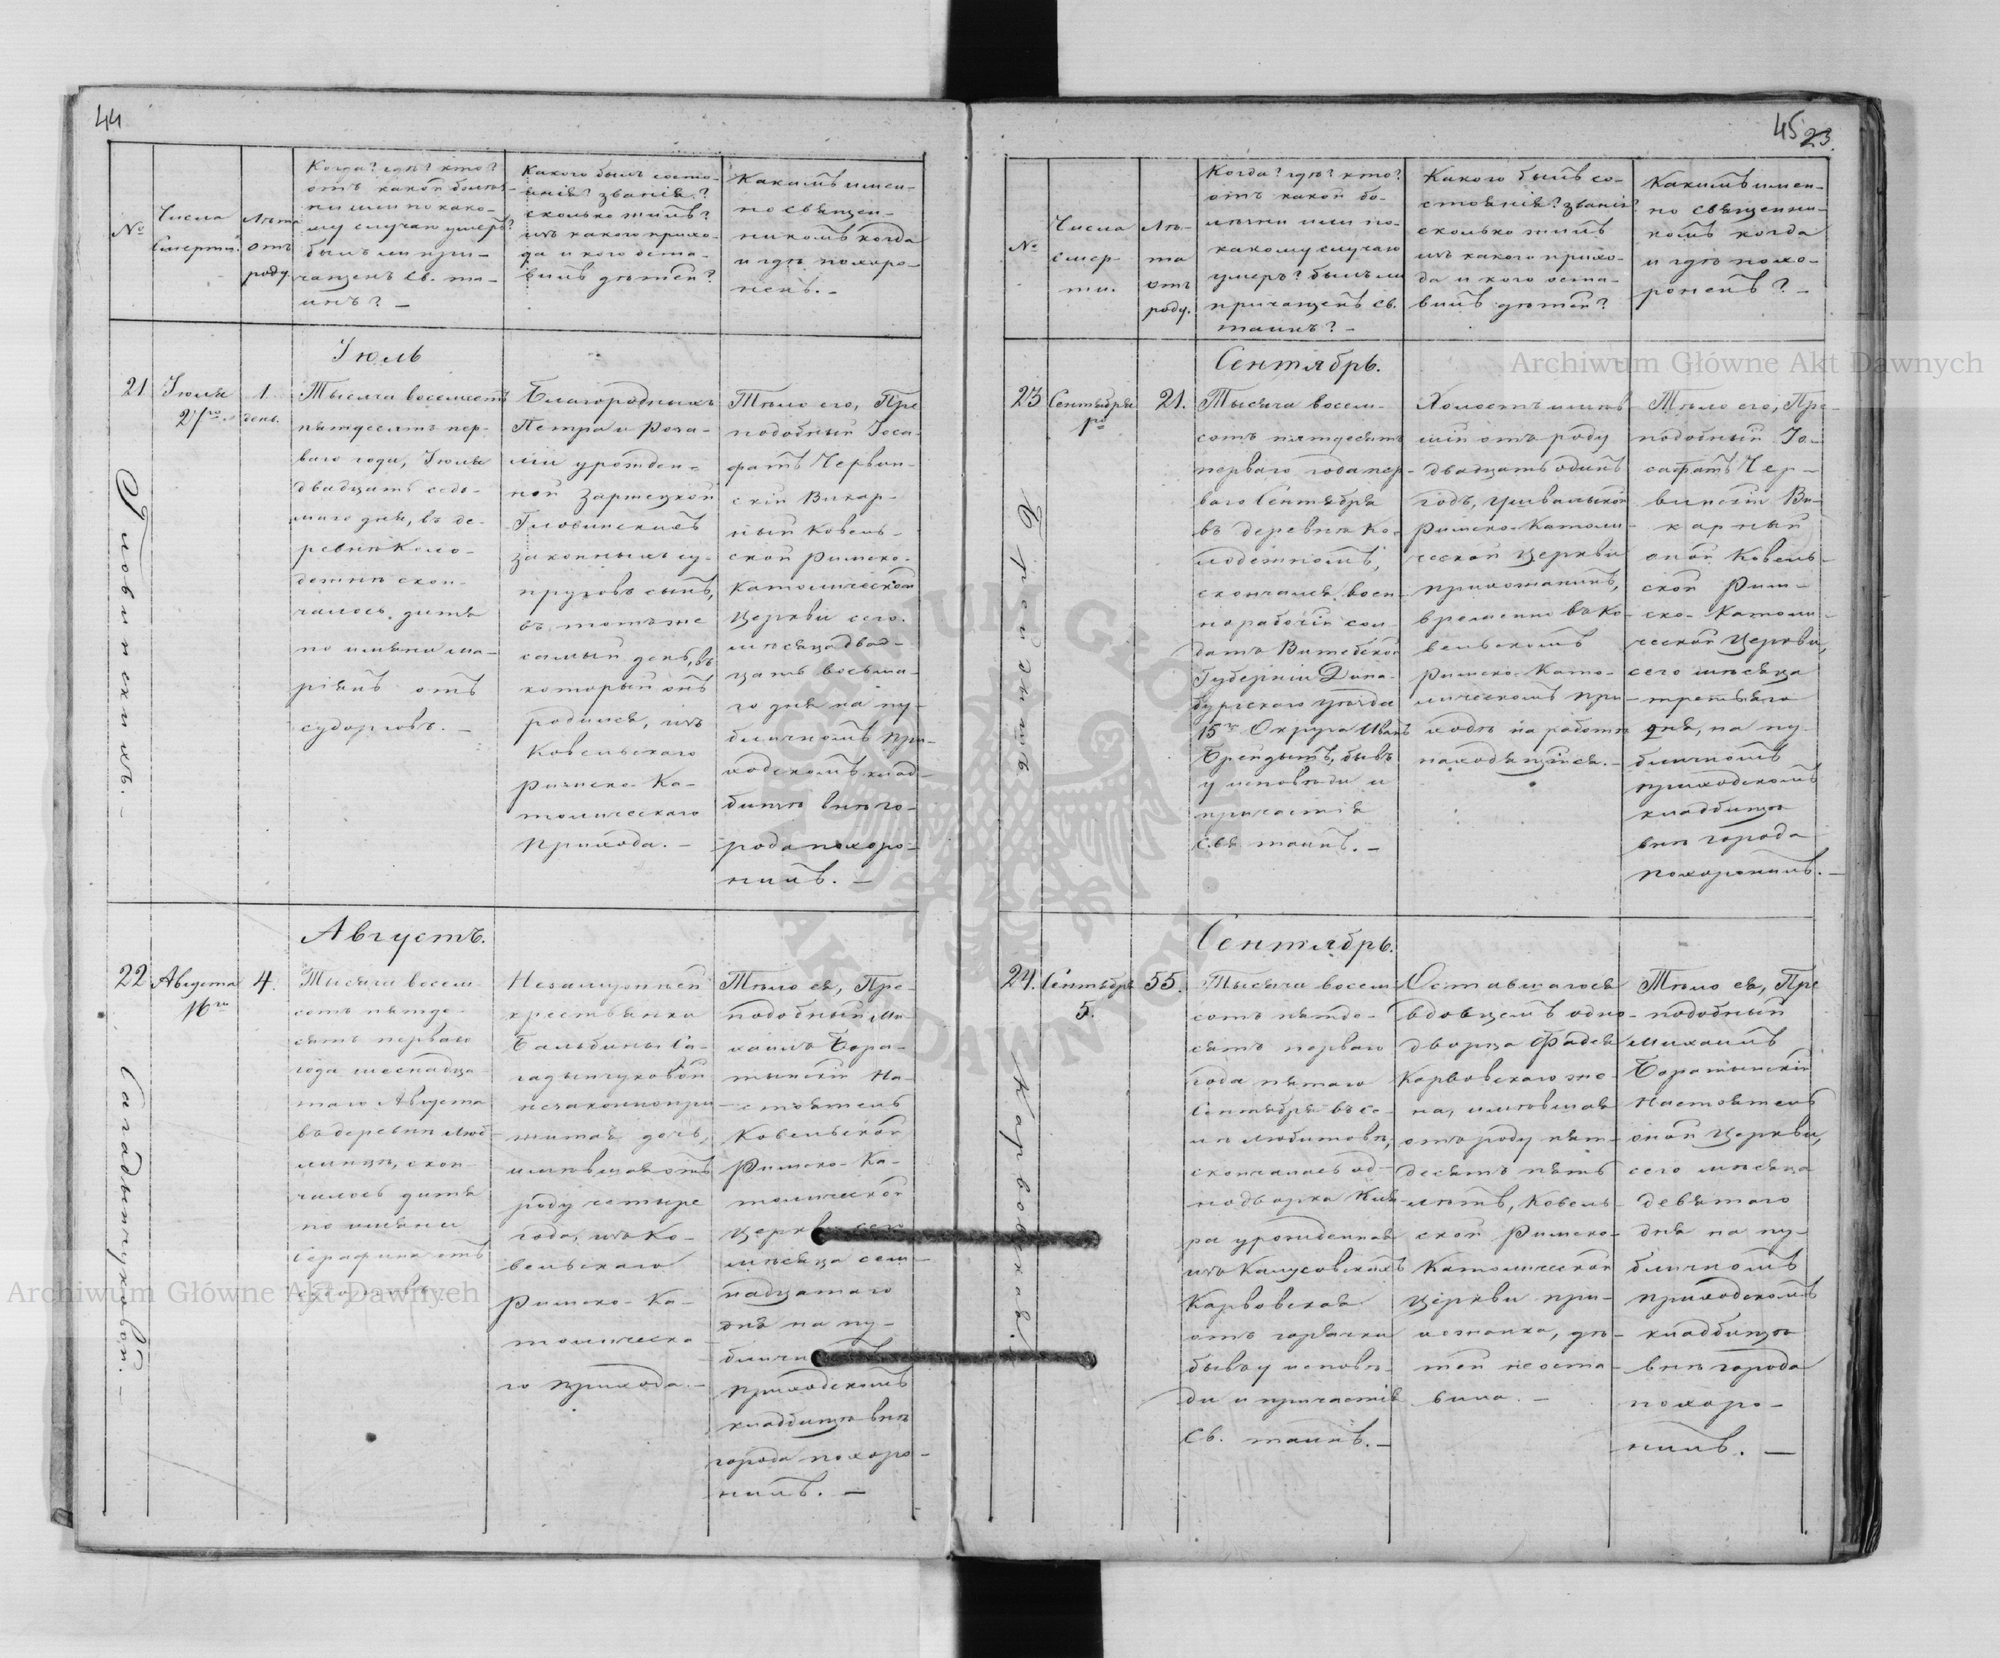 44
№
Числа
Смерти.
Лѣта
отъ
роду.
Когда? гдѣ? кто?
отъ какой болѣз-
ни или по како-
му случаю умеръ?
былъ ли при-
чащенъ Св. та-
инъ? —
Какого былъ состо-
янія? званія?
сколько жилъ?
изъ какого прихо-
да и кого оста-
вилъ дѣтей?
Какимъ имен-
но священ-
никомъ когда
и гдѣ похоро-
ненъ. —
Іюль
21
Іюля
27го
1
день.
Головинскихъ. —
Тысяча восемьсотъ
пятдесятъ пер-
ваго года, Іюля
двадцать седь-
маго дня, въ де-
ревнѣ Коло-
дежнѣ скон-
чалось дитя
по имяни Ма-
ріянъ отъ
судорговъ. —
Благородныхъ
Петра и Роза-
ліи урожден-
ной Заржецкой
Головинскихъ
законныхъ су-
пруговъ сынъ,
въ тотъ же
самый день, въ
который онъ
родился, изъ
Ковельскаго
Римско-Ка-
толическаго
прихода. —
Тѣло его, Пре
подобный Іоса-
фатъ Червин-
скій Викар-
ный Ковель-
ской Римско-
Католической
Церкви сего
мѣсяца двад-
цать восьма-
го дня на пу-
бличномъ при-
ходскомъ клад-
бищѣ внѣ го-
рода похоро-
нилъ. —
Августъ.
22
Августа
16го
4.
Сагадынчуковой. —
Тысяча восем
сотъ пятде-
сятъ перваго
года шеснадца-
таго Августа
въ деревнѣ Люб
линцѣ, скон-
чалось дитя
по имяни
Серафина отъ
Незамужней
крестьянки
Бальбины Са-
гадынчуковой
незаконнопри
житая дочь,
имѣвшая отъ
роду четыре
года, изъ Ко-
вельскаго
Римско-Ка-
толическа
го прихода. —
Тѣло ея, Пре-
подобный Ми-
хаилъ Бора-
тынскій На-
стоятель
Ковельской
Римско-Ка-
толической
Церкви сего
мѣсяца сем-
надцатаго
дня на пу-
бличномъ
приходскомъ
кладбищѣ внѣ
города похоро-
нилъ. —
45
23.
№
Числа
смер-
ти.
Лѣ-
та
отъ
роду.
Когда? гдѣ? кто?
отъ какой бо-
лѣзни или по-
какому случаю
умеръ? былъ ли
причащенъ Св.
таинъ? —
Какого былъ со-
стоянія? званія?
сколько жилъ
изъ какого прихо-
да и кого оста-
вилъ дѣтей?
Какимъ имен-
но священни-
комъ когда
и гдѣ похо-
роненъ? —
Сентябрь.
23
Сентября
1го
21.
Брейдышъ
Тысяча восем-
сотъ пятдесятъ
перваго года пер-
ваго Сентября
въ деревнѣ Ко-
лодежномъ,
скончался воен-
норабочій сол-
датъ Витебской
Губерніи Дина-
бургскаго уѣзда
15го Округа Иванъ
Брейдышъ, бывъ
у исповѣди и
причастія
Свя таинъ. —
Холостъ имѣв-
шій отъ роду
двадцать одинъ
годъ,
Римско-Католи-
ческой Церкви
прихожанинъ,
временно въ Ко
вельскомъ
Римско-Като-
лическомъ при
ходѣ на работѣ
находящійся. —
Тѣло его, Пре-
подобный Іо-
сафатъ Чер-
винскій Ви-
карный
оной Ковель-
ской Рим-
ско-Католи-
ческой Церкви,
сего мѣсяца
третьяго
дня, на пу-
бличномъ
приходскомъ
кладбищѣ
внѣ города
похоронилъ. —
Сентябрь.
24.
Сентября
5.
55.
Карвовской. —
Тысяча восем
сотъ пятде-
сятъ перваго
года пятаго
Сентября въ се-
лѣ Любитовѣ,
скончалась од-
нодворка Кля-
ра урожденная
изъ Калусовскихъ
Карвовская
отъ горячки
бывъ у исповѣ-
ди и причастія
Св. таинъ. —
Оставшагося
вдовцемъ одно-
дворца Фадея
Карвовскаго же-
на, имѣвшая
отъ роду пят-
десятъ пять
лѣтъ, Ковель-
ской Римско-
Католической
Церкви при-
хожанка, дѣ-
тей не оста-
вила. —
Тѣло ея, Пре
подобный
Михаилъ
Боратынскій
Настоятель
оной Церкви,
сего мѣсяца
девятаго
дня на пу-
бличномъ
приходскомъ
кладбищѣ
внѣ города
похоро-
нилъ. —
Archiwum Główne Akt Dawnych
Archiwum Główne Akt Dawnych
ARCHIWUM GŁÓWNE AKT DAWNYCH